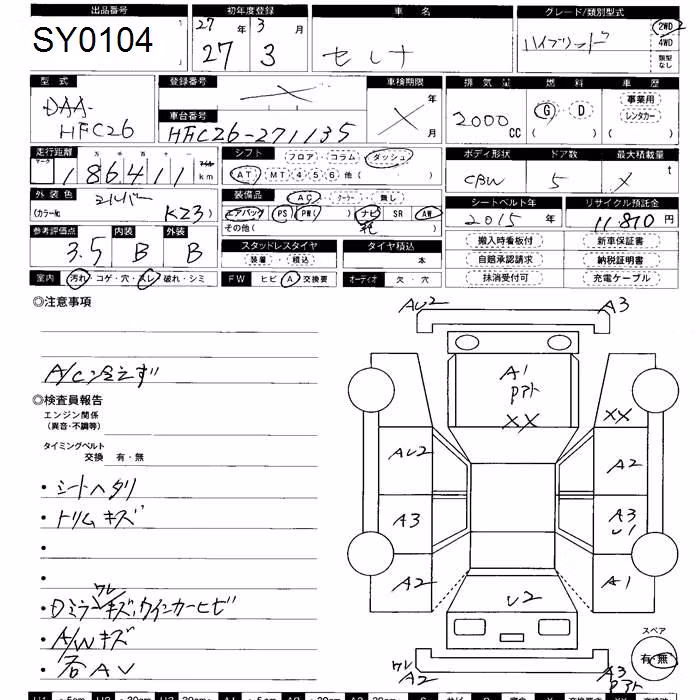 出品番号 初年度登録 車名 グレード/類別型式
SY0104 27年 3月 2WD
27 3 セレナ ハイブリッド 4WD
類型なし
型式 登録番号 車検期限 排気量 燃料 車歴
DAA- X 年 事業用
HFC26 車台番号 X 月 2000CC G・D レンタカー
HFC26-271135 ( ) ( )
走行距離 シフト フロア・コラム・ダッシュ ボディ形状 ドア数 最大積載量
マーク 十 万 千 百 十 一
186411 km AT・MT 4 5 6 他( ) CBW 5 X t
外装色 シルバー 装備品 AC・クーラー・無し シートベルト年 リサイクル預託金
(カラーNo. K23) エアバック PS PW( ) ナビ SR AW 2015年 11810円
参考評価点 内装 外装 その他( ) 搬入時看板付 新車保証書
3.5 B B スタッドレスタイヤ タイヤ積込 自賠承認請求 納税証明書
装着・積込 本 抹消受付可 充電ケーブル
室内 汚れ・コゲ・穴・スレ・破れ・シミ FW ヒビ・A・交換要 オーディオ 欠・穴
◎注意事項
A/C冷えず
◎検査員報告
エンジン関係
(異音・不調等)
タイミングベルト
交換 有・無
・シートヘタリ
・トリムキズ
・
・
ワレ
・Dミラーキズ,ウインカーヒビ
・A/Wキズ
・否AV
AU2 A3
A1
Pアト
XX XX
AU2 A2
A3 A3
U1
A2 A1
U2
スペア
有・無
ワレ
A2 A3
Pアト